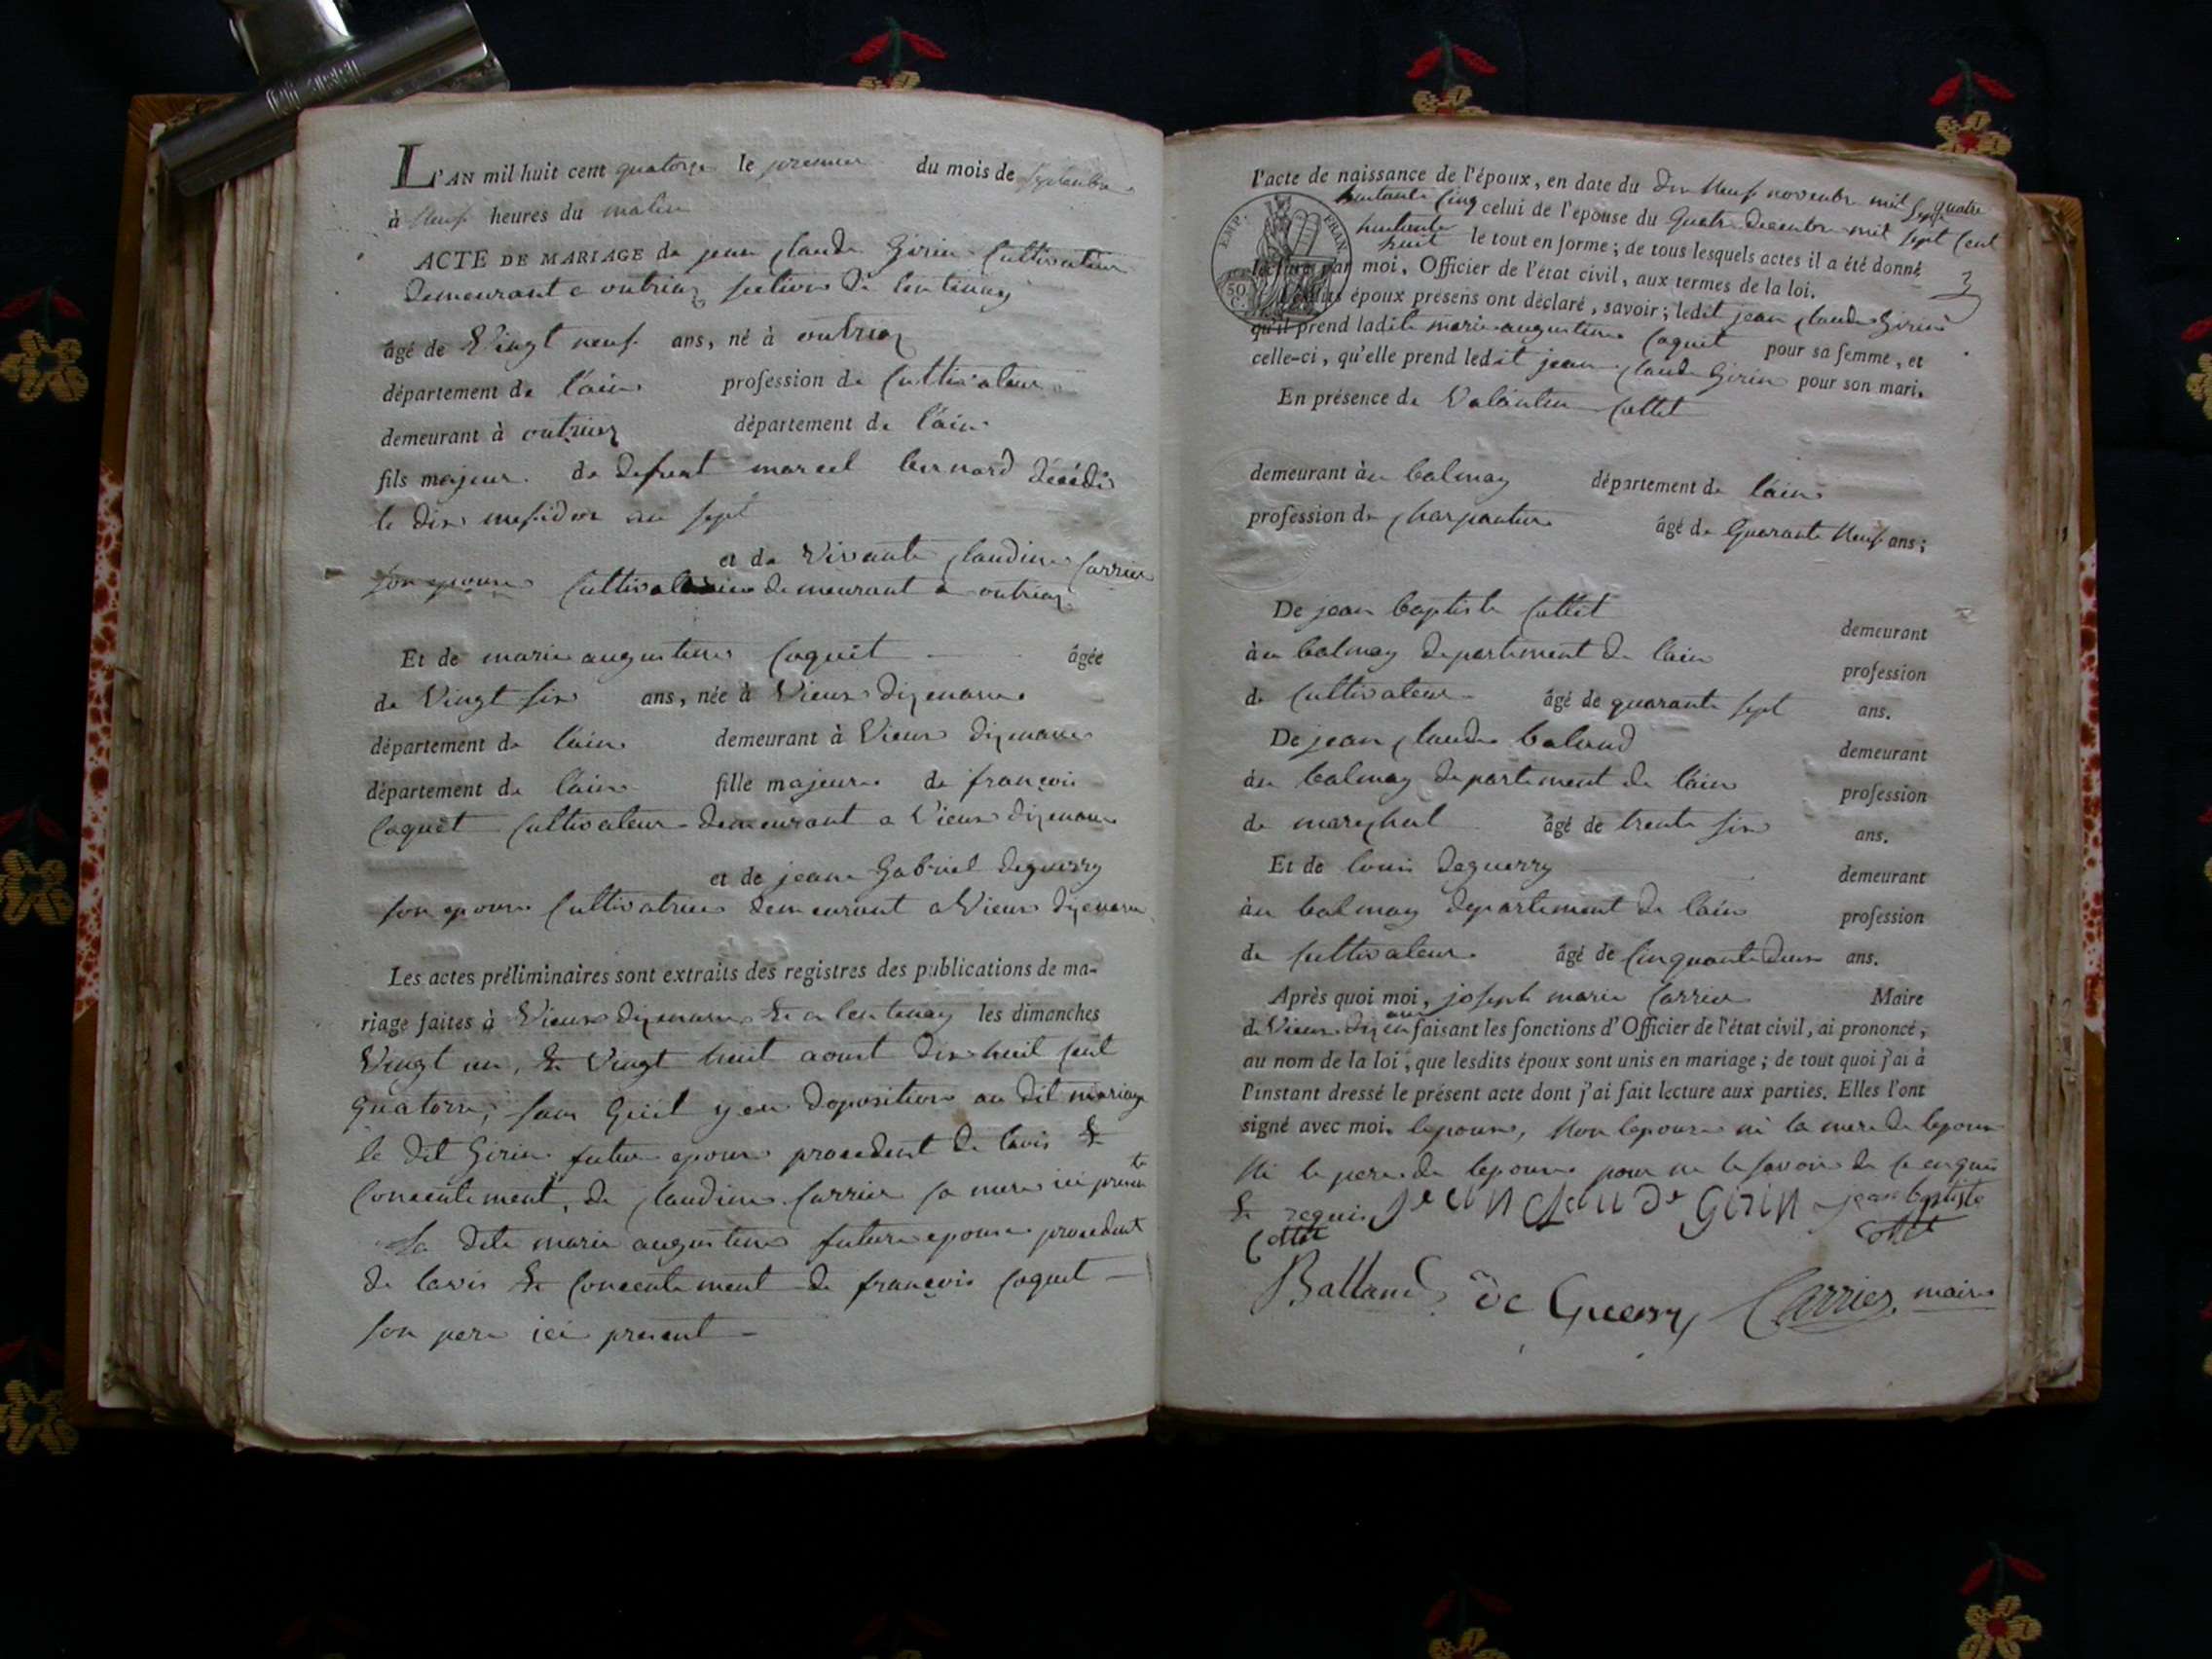 L'AN mil huit cent quatorze le premier du mois de septembre
à neuf heures du matin
ACTE DE MARIAGE de jean claude Girin Cultivateur
demeurant a outriaz section de lentenay
âgé de Vingt neuf ans, né à outriaz
département de l'ain profession de Cultivateur
demeurant à outriaz département de l'ain
fils majeur de defunt marcel bernard décédé
le dix messidor an sept
et de Vivante claudine Carrier
son epouse Cultivatrice demeurant a outriaz
Et de marie augustine Coquet âgée
de Vingt six ans, née à Vieux dizenave
département de l'ain demeurant à Vieux dizenave
département de l'ain fille majeure de françois
Coquet Cultivateur demeurant a Vieux dizenave
et de jeane Gabriel deguerry
son epouse Cultivatrice demeurant a Vieux dizenave
Les actes préliminaires sont extraits des registres des publications de ma-
riage faites à Vieux dizenave & a lentenay les dimanches
Vingt un, & Vingt huit aoust dix huit cent
quatorze, sans quil y eu doposition au dit mariage
le dit Girin futur epoux procedent de lavis &
Consentement, de claudine Carrier sa mere ici presente
La dite marie augustine future epouse procedent
de lavis & Consentement de françois Coquet
son pere ici present
l'acte de naissance de l'époux, en date du dix Neuf novembre mil sept quatre
huitante Cinq celui de l'épouse du Quatre decembre mil sept Cent
huitante huit le tout en forme ; de tous lesquels actes il a été donné
lecture par moi, Officier de l'état civil, aux termes de la loi. 3
EMP. FRAN 50 C.
Lesdits époux présens ont déclaré, savoir ; ledit jean claude Girin
qu'il prend ladite marie augustine Coquet pour sa femme, et
celle-ci, qu'elle prend ledit jean claude Girin pour son mari.
En présence de Valentin Cottet
demeurant àu balmay département de l'ain
profession de charpentier âgé de Quarante Neuf ans ;
De jean baptiste Cottet demeurant
àu balmay departement de lain profession
de Cultivateur âgé de quarante sept ans.
De jean claude baland demeurant
àu balmay departement de l'ain profession
de marechal âgé de trente six ans.
Et de louis deguerry demeurant
àu balmay departement de lain profession
de Cultivateur âgé de Cinquante deux ans.
Après quoi moi, joseph marie Carrier Maire
de Vieux dizenave faisant les fonctions d'Officier de l'état civil, ai prononcé,
au nom de la loi, que lesdits époux sont unis en mariage ; de tout quoi j'ai à
l'instant dressé le présent acte dont j'ai fait lecture aux parties. Elles l'ont
signé avec moi. lepoux, Non lepouse ni la mere de lepoux
Ni le pere de lepouse pour ne le savoir de ce enquis
& requis jean claude Girin jean baptiste
Cottet Cottet
Balland de Guerry Carrier, maire